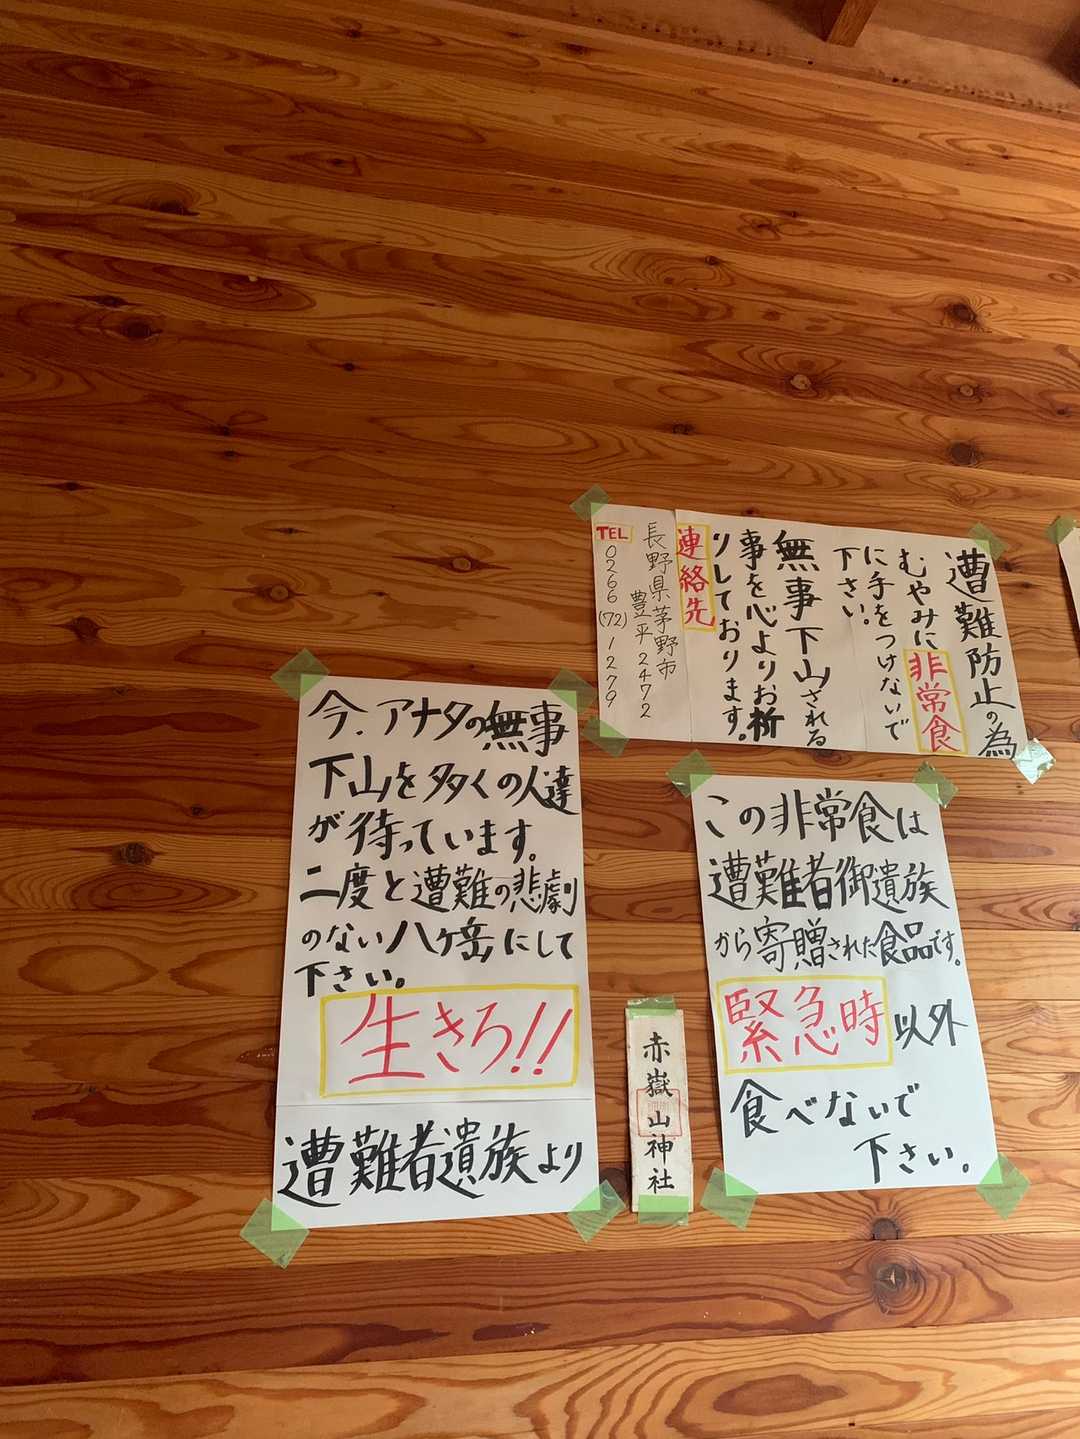 遭難防止の為
むやみに非常食
に手をつけないで
下さい。
無事下山される
事を心よりお祈
りしております。
連絡先
長野県茅野市
豊平2472
TEL
0266(72)1279
今、アナタの無事
下山を多くの人達
が待っています。
二度と遭難の悲劇
のない八ヶ岳にして
下さい。
生きろ!!
遭難者遺族より
赤嶽山神社
この非常食は
遭難者御遺族
から寄贈された食品です。
緊急時以外
食べないで
下さい。